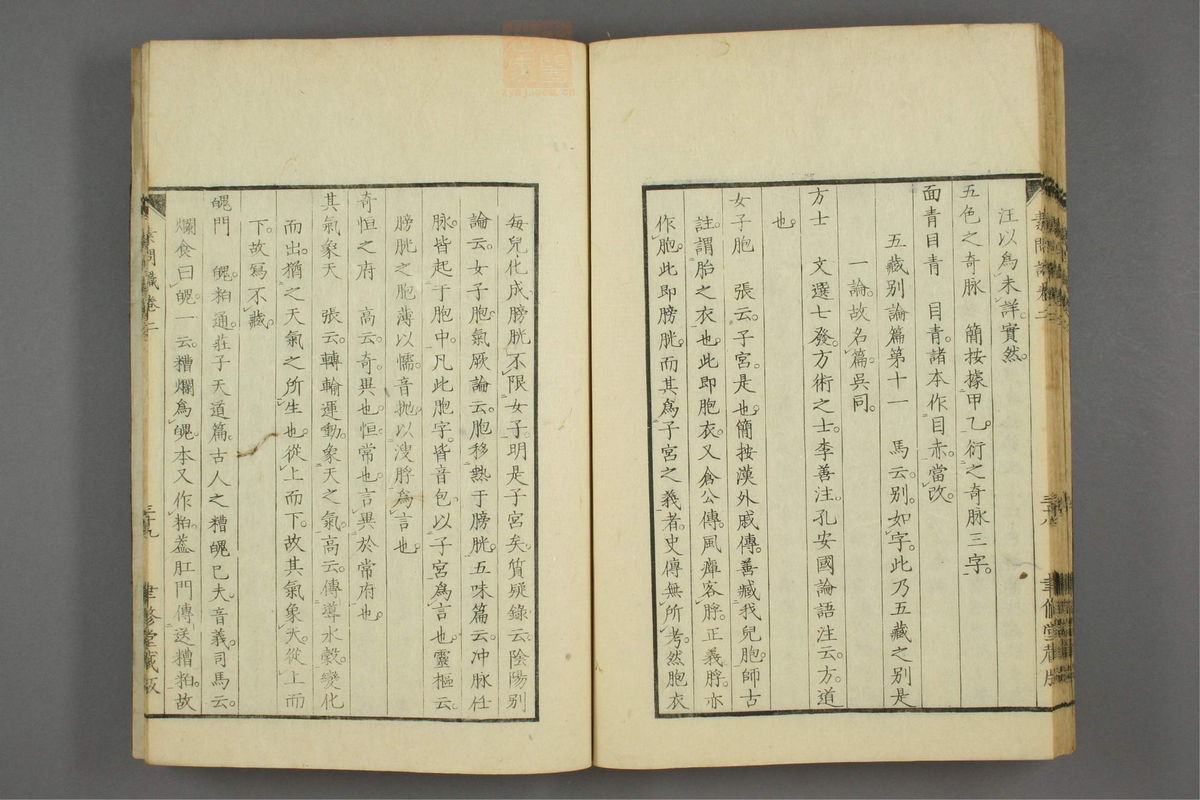 汪以爲未詳。實然。
五色之奇脉　簡按據甲乙。衍之奇脉三字。
面青目青　目青。諸本作目赤。當改。
五藏別論篇第十一　馬云。別。如字。此乃五藏之別是
一論。故名篇。吳同。
方士　文選七發。方術之士。李善注。孔安國論語注云。方。道
也。
女子胞　張云。子宮是也。簡按漢外戚傳。善臧我兒胞。師古
註。謂胎之衣也。此即胞衣。又倉公傳。風癉客脬。正義。脬。亦
作胞。此即膀胱。而其爲子宮之義者。史傳無所考。然胞衣
素問識卷二
三十八
聿修堂藏版
每兒化成。膀胱不限女子。明是子宮矣。質疑錄云。陰陽別
論云。女子胞。氣厥論云。胞移熱于膀胱。五味篇云。冲脉任
脉。皆起于胞中。凡此胞字。皆音包。以子宮爲言也。靈樞云。
膀胱之胞薄以懦。音抛。以溲脬爲言也。
奇恒之府　高云。奇。異也。恒。常也。言異於常府也。
其氣象天　張云。轉輸運動。象天之氣。高云。傳導水穀。變化
而出。猶之天氣之所生也。從上而下。故其氣象天。從上而
下。故寫不藏。
魄門　魄粕通。莊子天道篇。古人之糟魄已夫。音義。司馬云。
爛食曰魄。一云糟爛爲魄。本又作粕。蓋肛門傳送糟粕。故
素問識卷二
三十九
聿修堂藏版